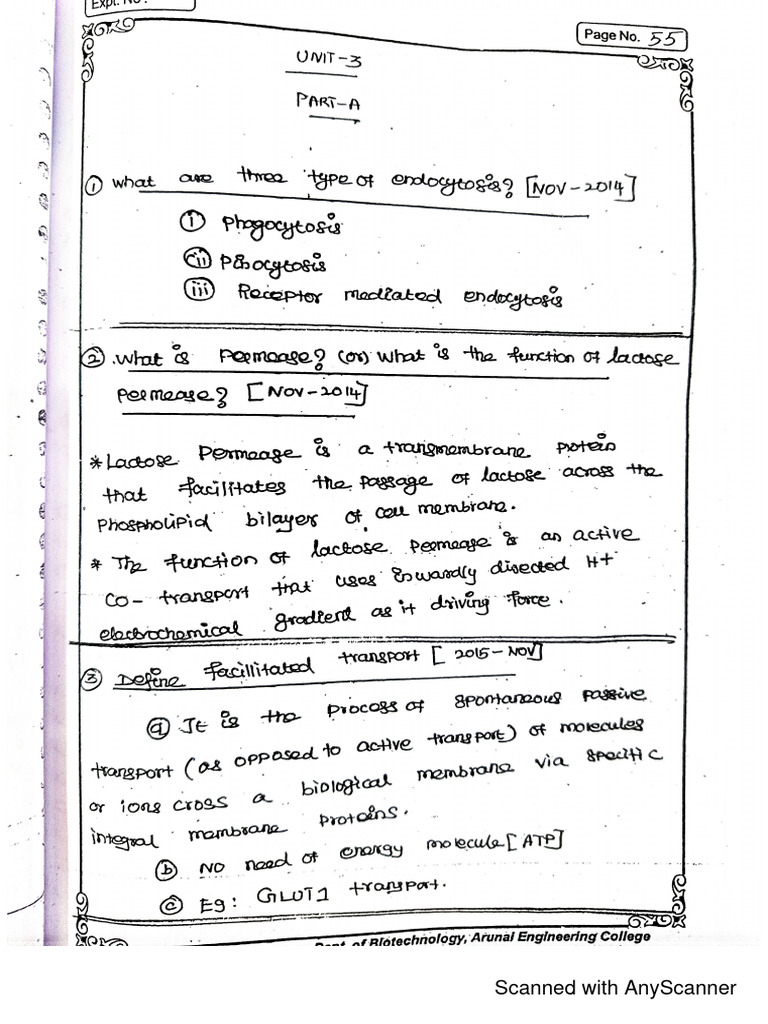 Expt. No.
Page No. 55
UNIT-3
PART-A
① what are three type of endocytosis? [NOV-2014]
ⓘ Phagocytosis
ⓘⓘ Pinocytosis
ⓘⓘⓘ Receptor mediated endocytosis
② .What is Permease? (or) what is the function of lactose
Permease? [NOV-2014]
*Lactose Permease is a transmembrane protein
that facilitates the passage of lactose across the
phospholipid bilayer of cell membrane.
* The function of lactose permease is an active
co-transport that uses inwardly directed H+
electrochemical gradient as it driving force.
③ Define facillitated transport [2015-NOV]
ⓐ It is the process of spontaneous passive
transport (as opposed to active transport) of molecules
or ions cross a biological membrane via specific
integral membrane proteins.
ⓑ NO need of energy molecule [ATP]
ⓒ Eg: GLUT1 transport.
Dept. of Biotechnology, Arunai Engineering College
Scanned with AnyScanner